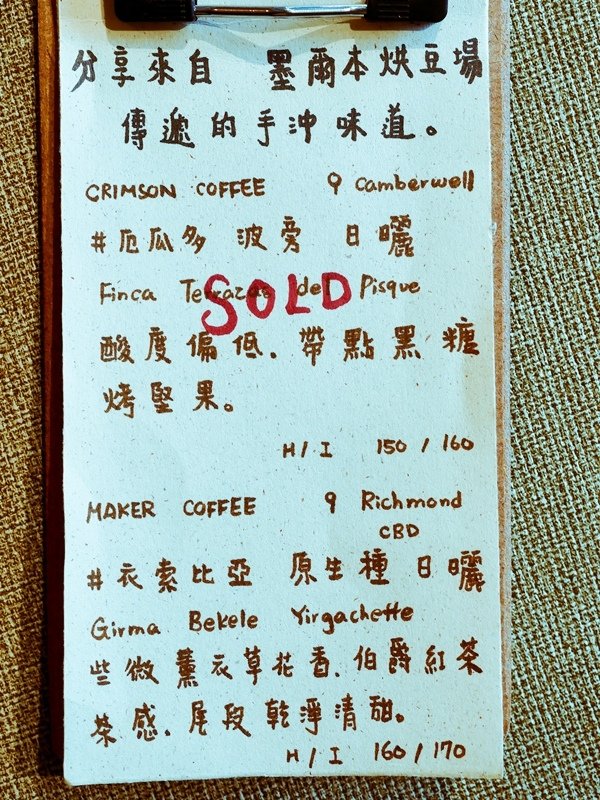 分享來自 墨爾本烘豆場
傳遞的手沖味道。
CRIMSON COFFEE Camberwell
#厄瓜多 波旁 日曬
Finca Terrazas del Pisque
SOLD
酸度偏低.帶點黑糖
烤堅果。
H/I 150/160
MAKER COFFEE Richmond
CBD
#衣索比亞 原生種 日曬
Girma Bekele Yirgachette
些微薰衣草花香.伯爵紅茶
茶感.尾段乾淨清甜。
H/I 160/170